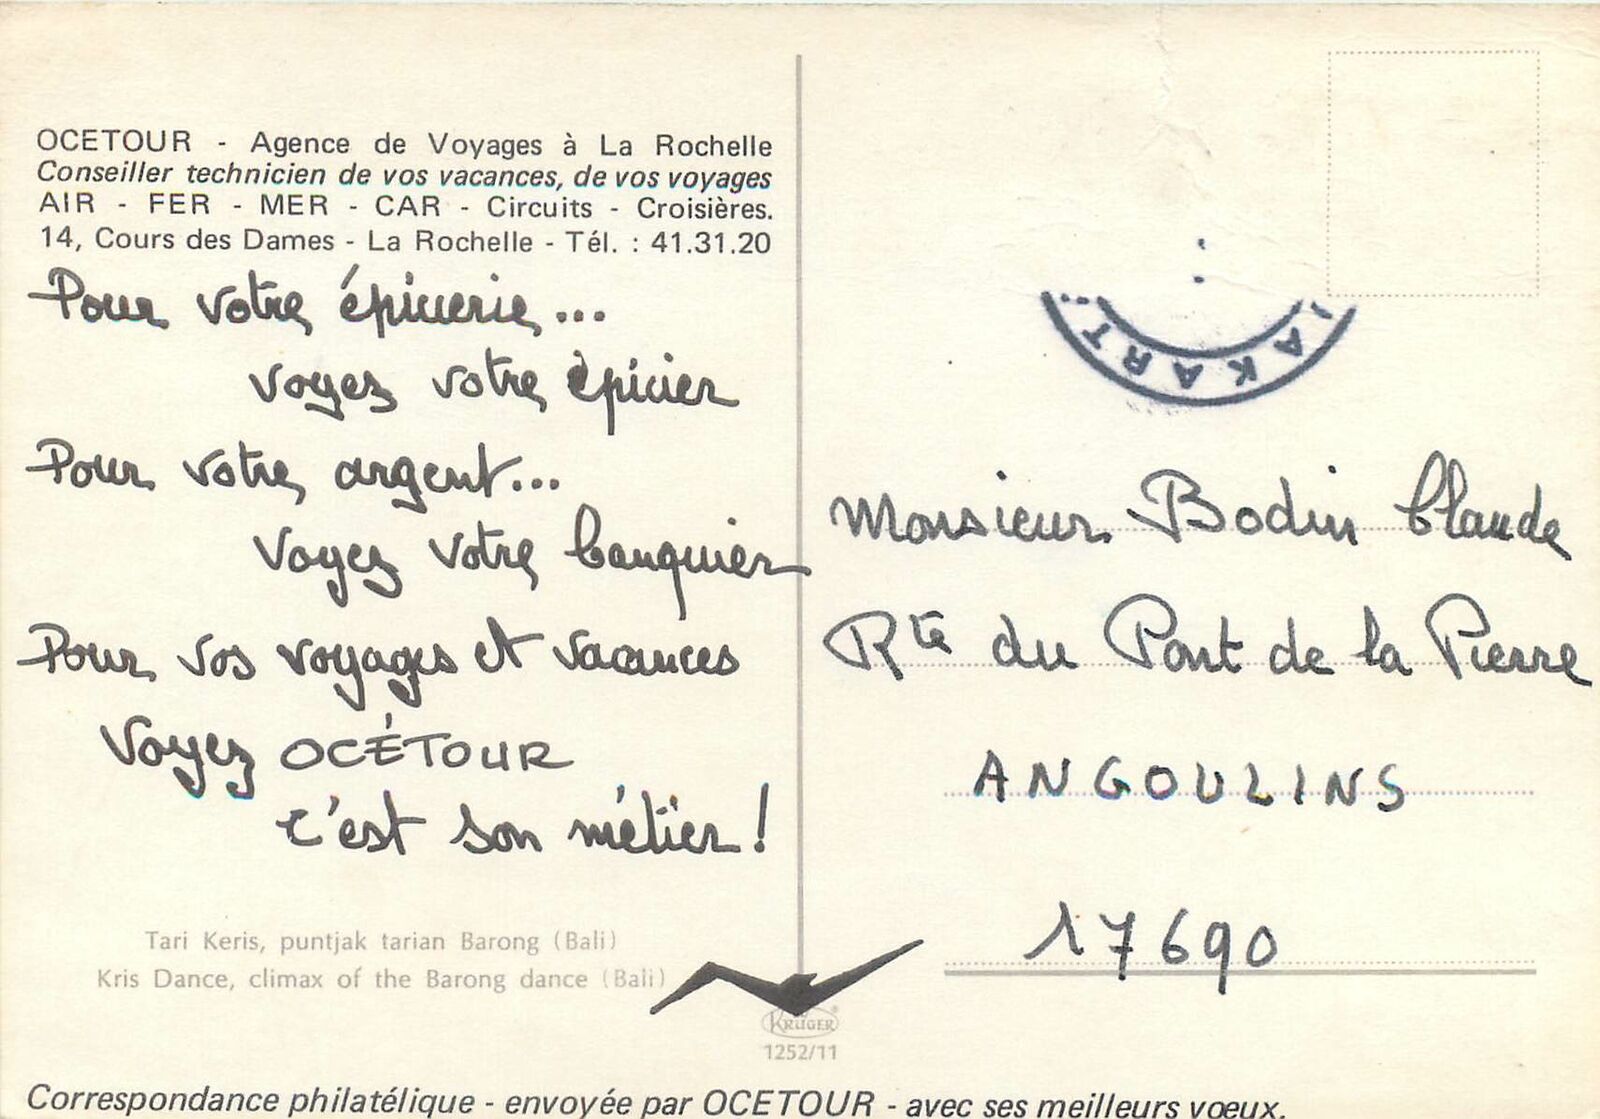 OCETOUR - Agence de Voyages à La Rochelle
Conseiller technicien de vos vacances, de vos voyages
AIR - FER - MER - CAR - Circuits - Croisières.
14, Cours des Dames - La Rochelle - Tél. : 41.31.20
Pour votre épicerie...
voyez votre épicier
Pour votre argent...
Voyez votre banquier
Pour vos voyages et vacances
Voyez OCÉTOUR
c'est son métier !
Tari Keris, puntjak tarian Barong (Bali)
Kris Dance, climax of the Barong dance (Bali)
KRÜGER
1252/11
Correspondance philatélique - envoyée par OCETOUR - avec ses meilleurs vœux.
JAKART
Monsieur Bodin Claude
Rte du Pont de la Pierre
ANGOULINS
17690